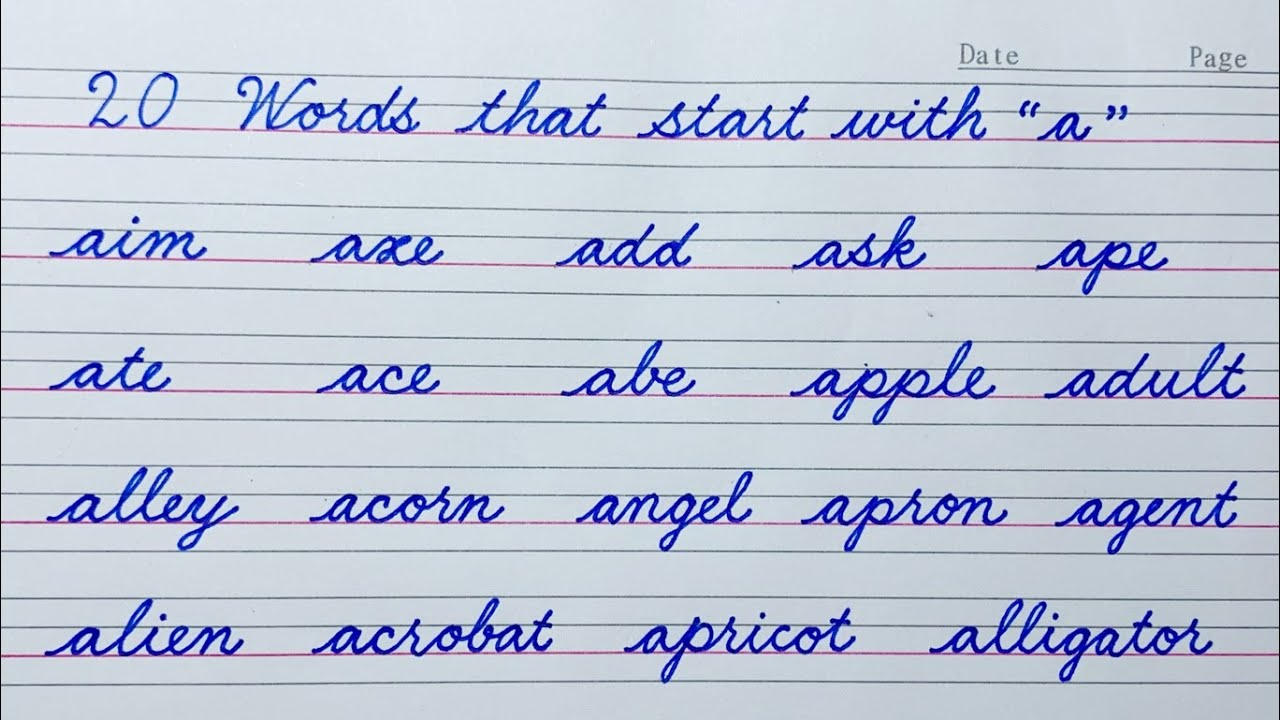 Date Page
20 Words that start with “a”
aim axe add ask ape
ate ace abe apple adult
alley acorn angel apron agent
alien acrobat apricot alligator